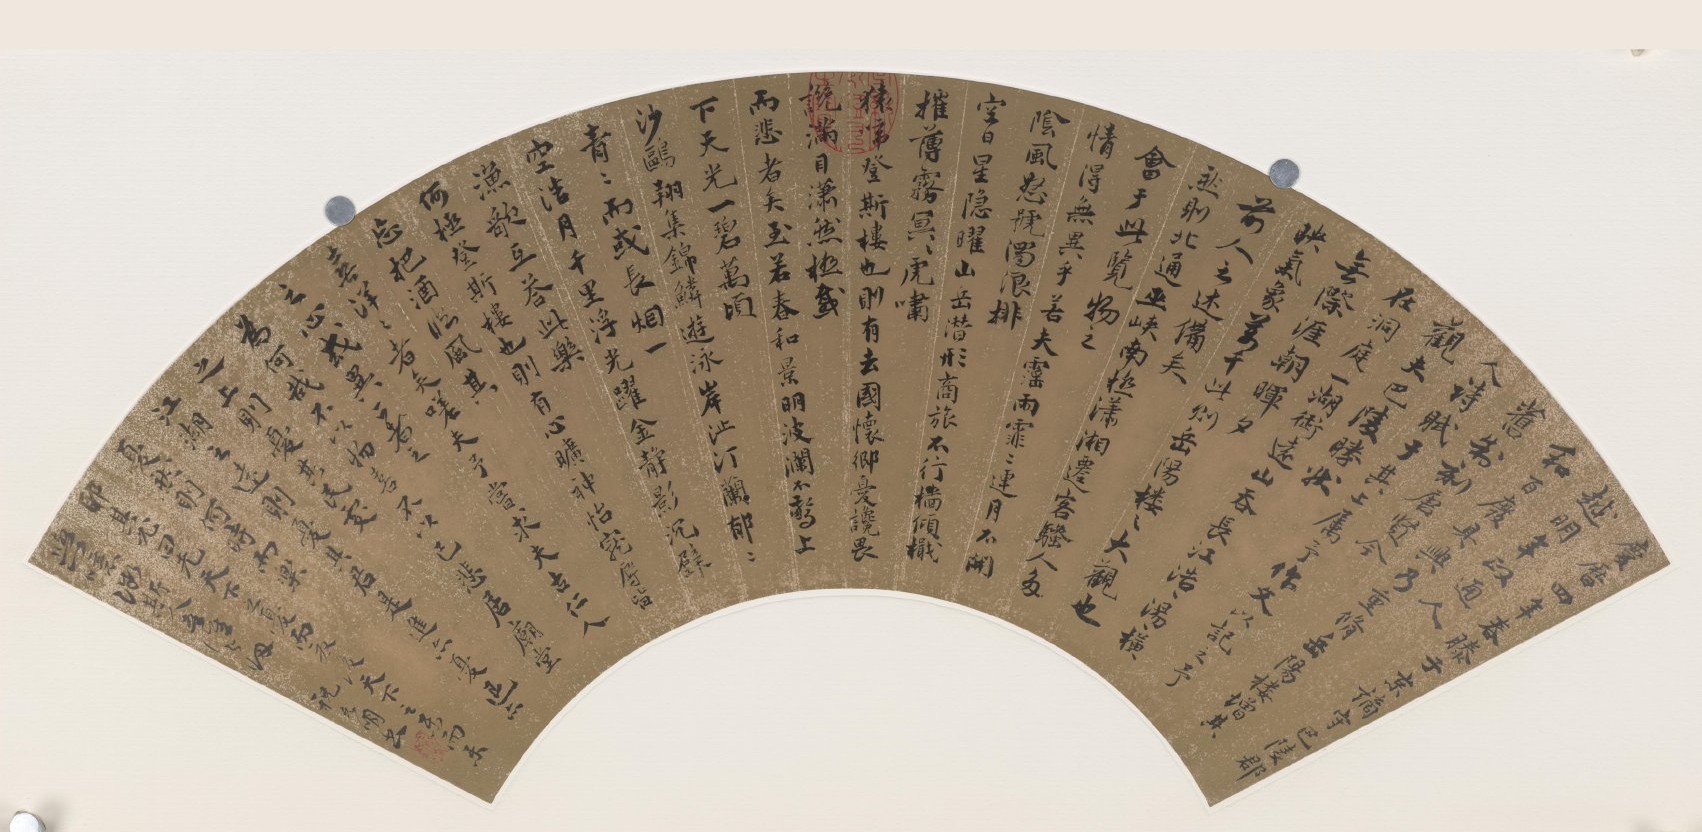 慶曆四年春滕子京謫守巴陵郡
越明年政通人
和百廢具興乃重修岳陽樓增其
舊制刻唐賢今
人詩賦于其上屬予作文以記之予
觀夫巴陵勝狀
在洞庭一湖銜遠山吞長江浩浩湯湯橫
無際涯朝暉夕
映氣象萬千此則岳陽樓之大觀也
前人之述備矣
然則北通巫峽南極瀟湘遷客騷人多
會于此覽物之
情得無異乎若夫霪雨霏霏連月不開
陰風怒號濁浪排
空日星隱曜山岳潛形商旅不行檣傾檝
摧薄霧冥冥虎嘯
猿啼登斯樓也則有去國懷鄉憂讒畏
譏滿目瀟然極感
而悲者矣至若春和景明波瀾不驚上
下天光一碧萬頃
沙鷗翔集錦鱗遊泳岸芷汀蘭郁郁
青青而或長烟一
空浩月千里浮光躍金靜影沉璧
漁歌互答此樂
何極登斯樓也則有心曠神怡寵辱皆
忘把酒臨風其
喜洋洋者矣嗟夫予嘗求夫古仁人
之心或異二者之
為何哉不以物喜不以己悲居廟堂
之上則憂其民處
江湖之遠則憂其君是進亦憂退亦
憂然則何時而樂
耶其必曰先天下之憂而憂後天下之樂而樂
噫微斯人吾誰與歸
祝允明書